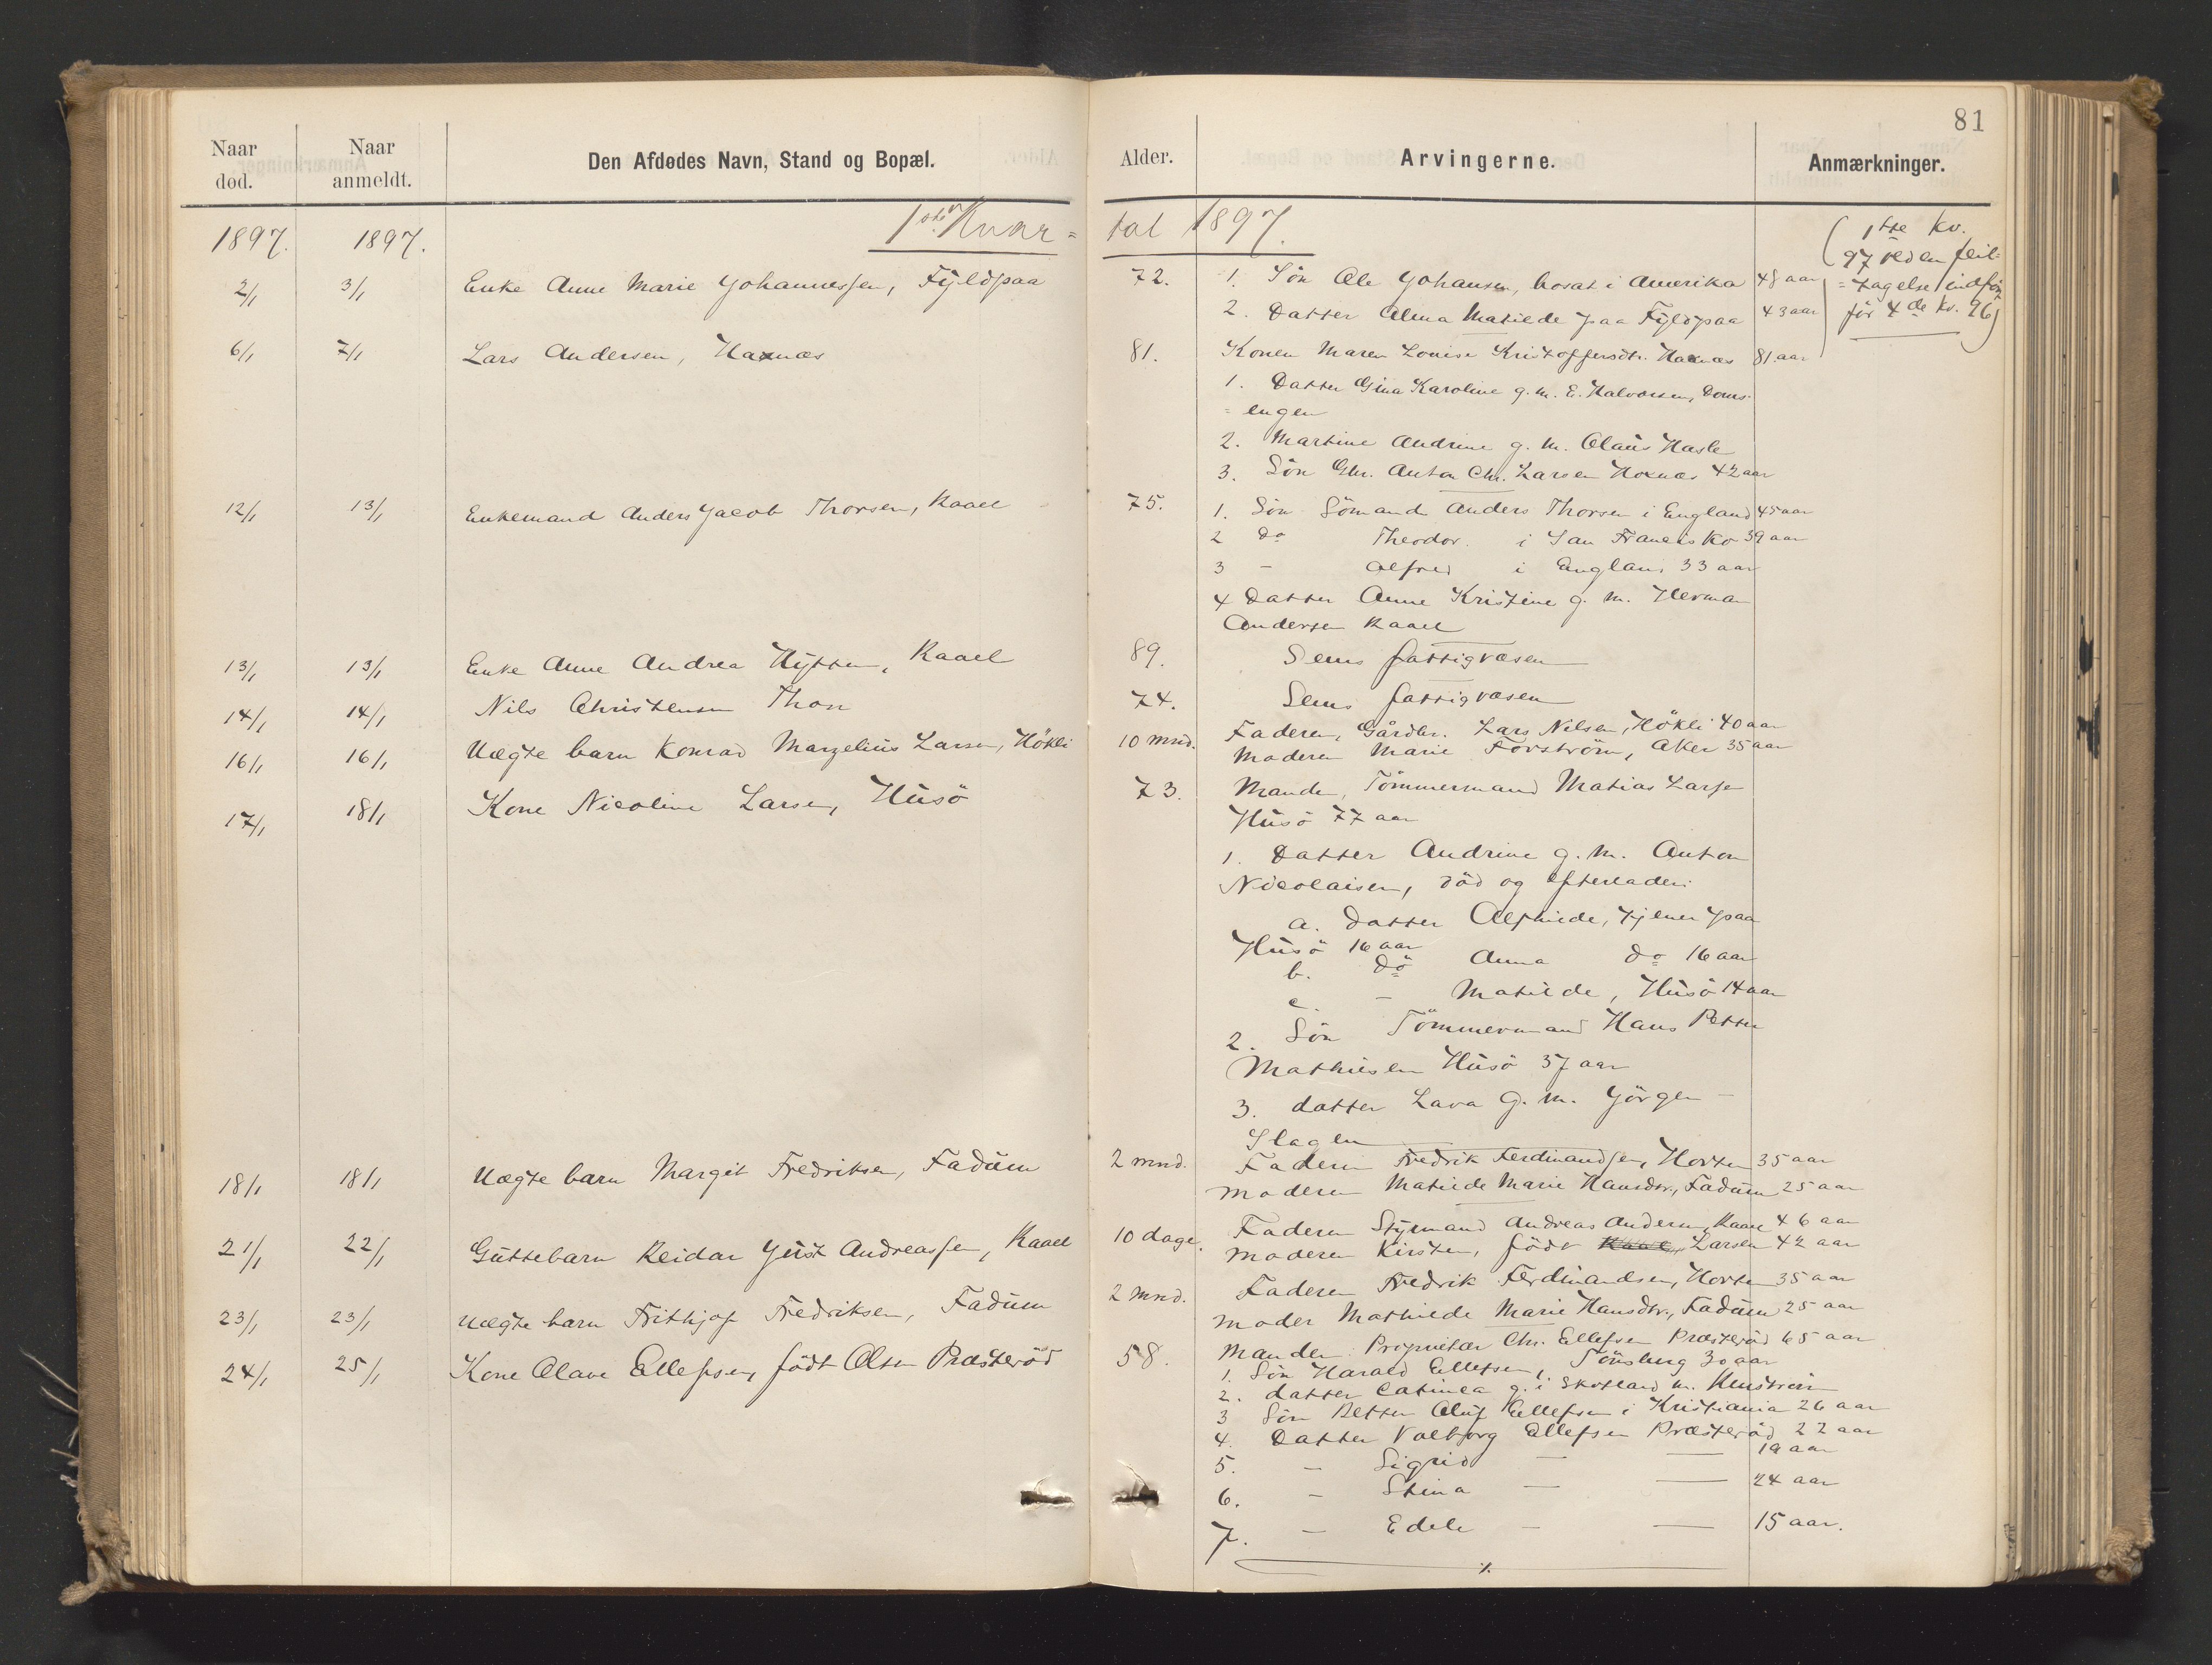 81
Naar død.
Naar anmeldt.
Den Afdødes Navn, Stand og Bopæl.
Alder.
Arvingerne.
Anmærkninger.
1ste Kvar=
tal 1897.
1897. 1897.
(1ste Kv.
97 ved en feil=
=tagelse indfört
för 4de Kv. 96)
2/1 3/1 Enke Anne Marie Johannessen, Fyldpaa 72. 1. Sön Ole Johansen, bosat i Amerika 48 aar
2. Datter Alma Matilde paa Fyldpaa 43 aar
6/1 7/1 Lars Andersen, Haxnæs 81. Konen Maren Louise Kristoffersdtr. Haxnæs 81 aar
1. Datter Gina Karoline g. m. E. Halvorsen, Doms=
=engen
2. Martine Andrine g. m. Olaus Hasle
3. Sön Gbr. Anton Chr. Larsen Hoxnæs 42 aar
12/1 13/1 Enkemand Anders Jacob Thorsen, Kaael 75. 1. Sön Sömand Anders Thorsen i England 45 aar
2 do Theodor. i San Francisko 39 aar
3 - Alfred i England 33 aar
4 Datter Anne Kristine g. m. Herman
Andersen Kaael
13/1 13/1 Enke Anne Andrea Hytten, Kaael 89. Sems fattigvæsen
14/1 14/1 Nils Christensen Thon 74. Sems fattigvæsen
16/1 16/1 Uægte barn Konrad Marzelius Larsen, Hökli 10 mnd. Faderen, Gårdbr. Lars Nilsen, Hökli 40 aar
Moderen Marie Forström, Aker 35 aar
17/1 18/1 Kone Nicoline Larsen, Husö 73. Manden, Tömmermand Matias Larsen
Husö 77 aar
1. Datter Andrine g. m. Anton
Nicolaisen, död og efterlader:
a. Datter Alfhilde, tjener paa
Husö 16 aar
b. do Anna do 16 aar
c - Matilde, Husö 14 aar
2. Sön Tömmermand Hans Petter
Mathisen Husö 37 aar
3. datter Lava g. m. Jörgen -
Slagen
18/1 18/1 Uægte barn Margit Fredriksen, Fadum 2 mnd. Faderen Fredrik Ferdinandsen, Horten 35 aar
Moderen Matilde Marie Hansdtr., Fadum 25 aar
21/1 22/1 Guttebarn Reidar Just Andreassen, Kaael 10 dage. Faderen Styrmand Andreas Andersen, Kaael 46 aar
Moderen Kirsten, födt Kaael, Larsen 42 aar
23/1 23/1 Uægte barn Frithjof Fredriksen, Fadum 2 mnd. Faderen Fredrik Ferdinandsen, Horten 35 aar
Moder Mathilde Marie Hansdtr., Fadum 25 aar
24/1 25/1 Kone Olave Ellefsen, födt Olsen Præsteröd 58. Manden Proprietær Chr. Ellefsen Præsteröd 65 aar
1. Sön Harald Ellefsen, Tönsberg 30 aar
2. datter Catinca g. i Skotland m.
3 Sön Petter Oluf Ellefsen i Kristiania 26 aar
4. Datter Valborg Ellefsen Præsteröd 22 aar
5. - Sigrid - — 19 aar
6. - Stina - — 24 aar
7. - Edele - — 15 aar.